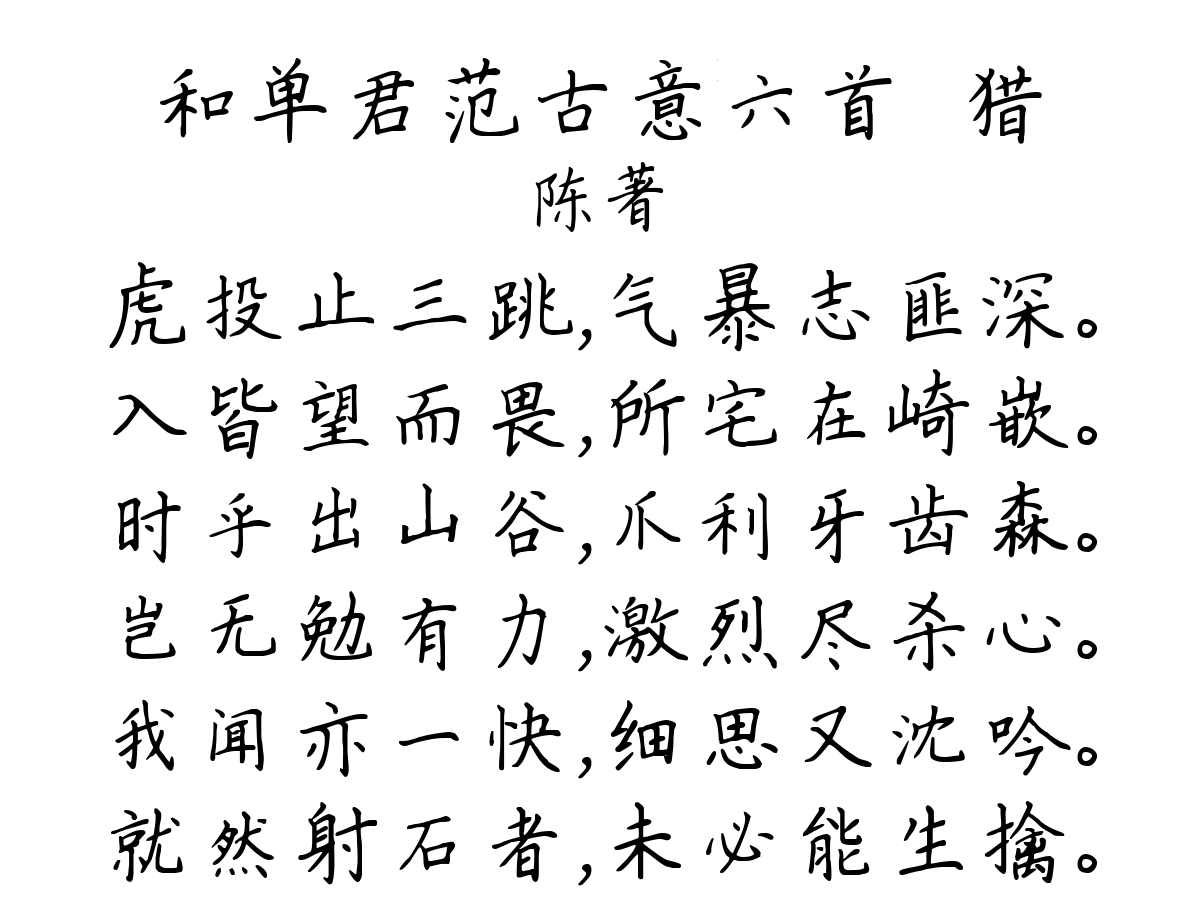 和单君范古意六首 猎
陈著
虎投止三跳,气暴志匪深。
入皆望而畏,所宅在崎嵌。
时乎出山谷,爪利牙齿森。
岂无勉有力,激烈尽杀心。
我闻亦一快,细思又沈吟。
就然射石者,未必能生擒。